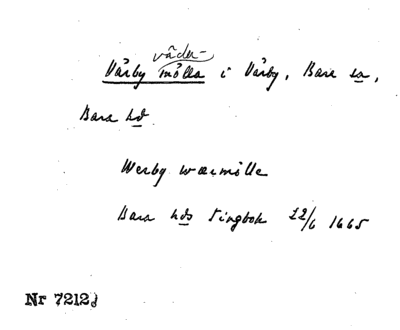 väder-
Värby mölla i Värby, Bara sn,
Bara hd
Werby wærmölle
Bara hds tingbok 22/6 1665
Nr 7212